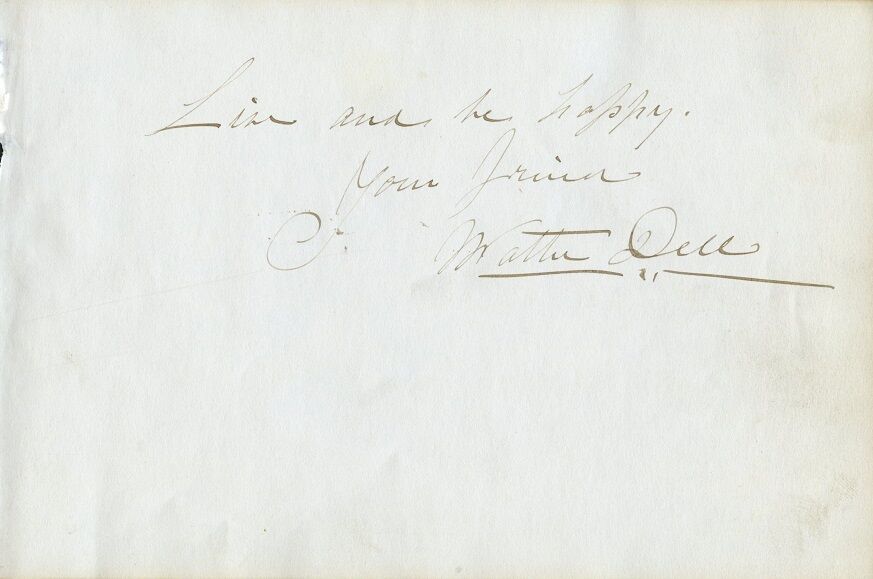 Live and be happy.
Your friend
C. Walter Dell